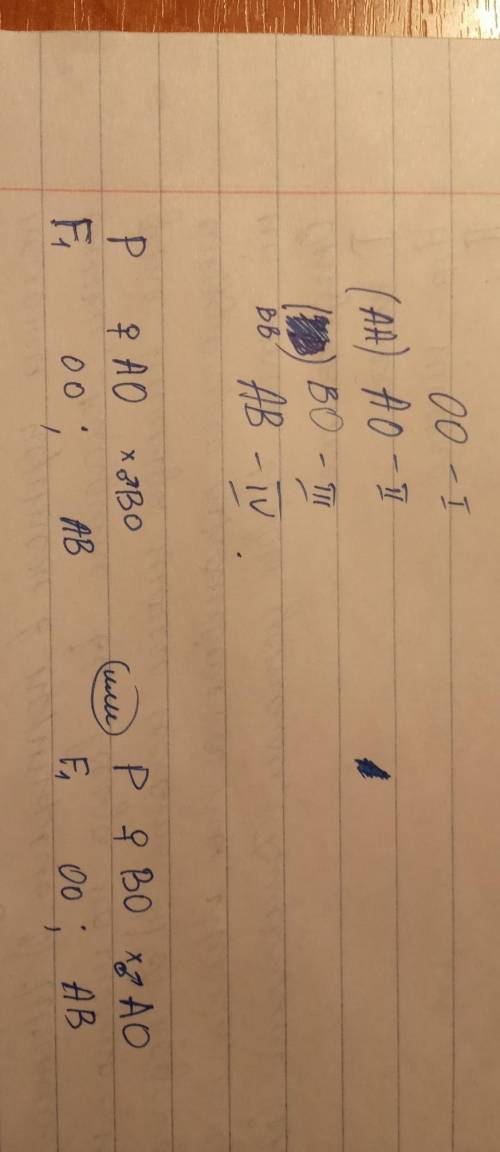 OO - I
(AA) AO - II
(BB) BO - III
AB - IV .
P ♀ AO x ♂ BO (или) P ♀ BO x ♂ AO
F₁ OO; AB F₁ OO; AB